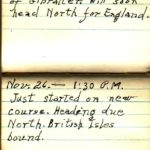 of Gibralter will soon
head North for England.
Nov. 26. — 1:30 P.M.
Just started on new
course. Heading due
North. British Isles
bound.